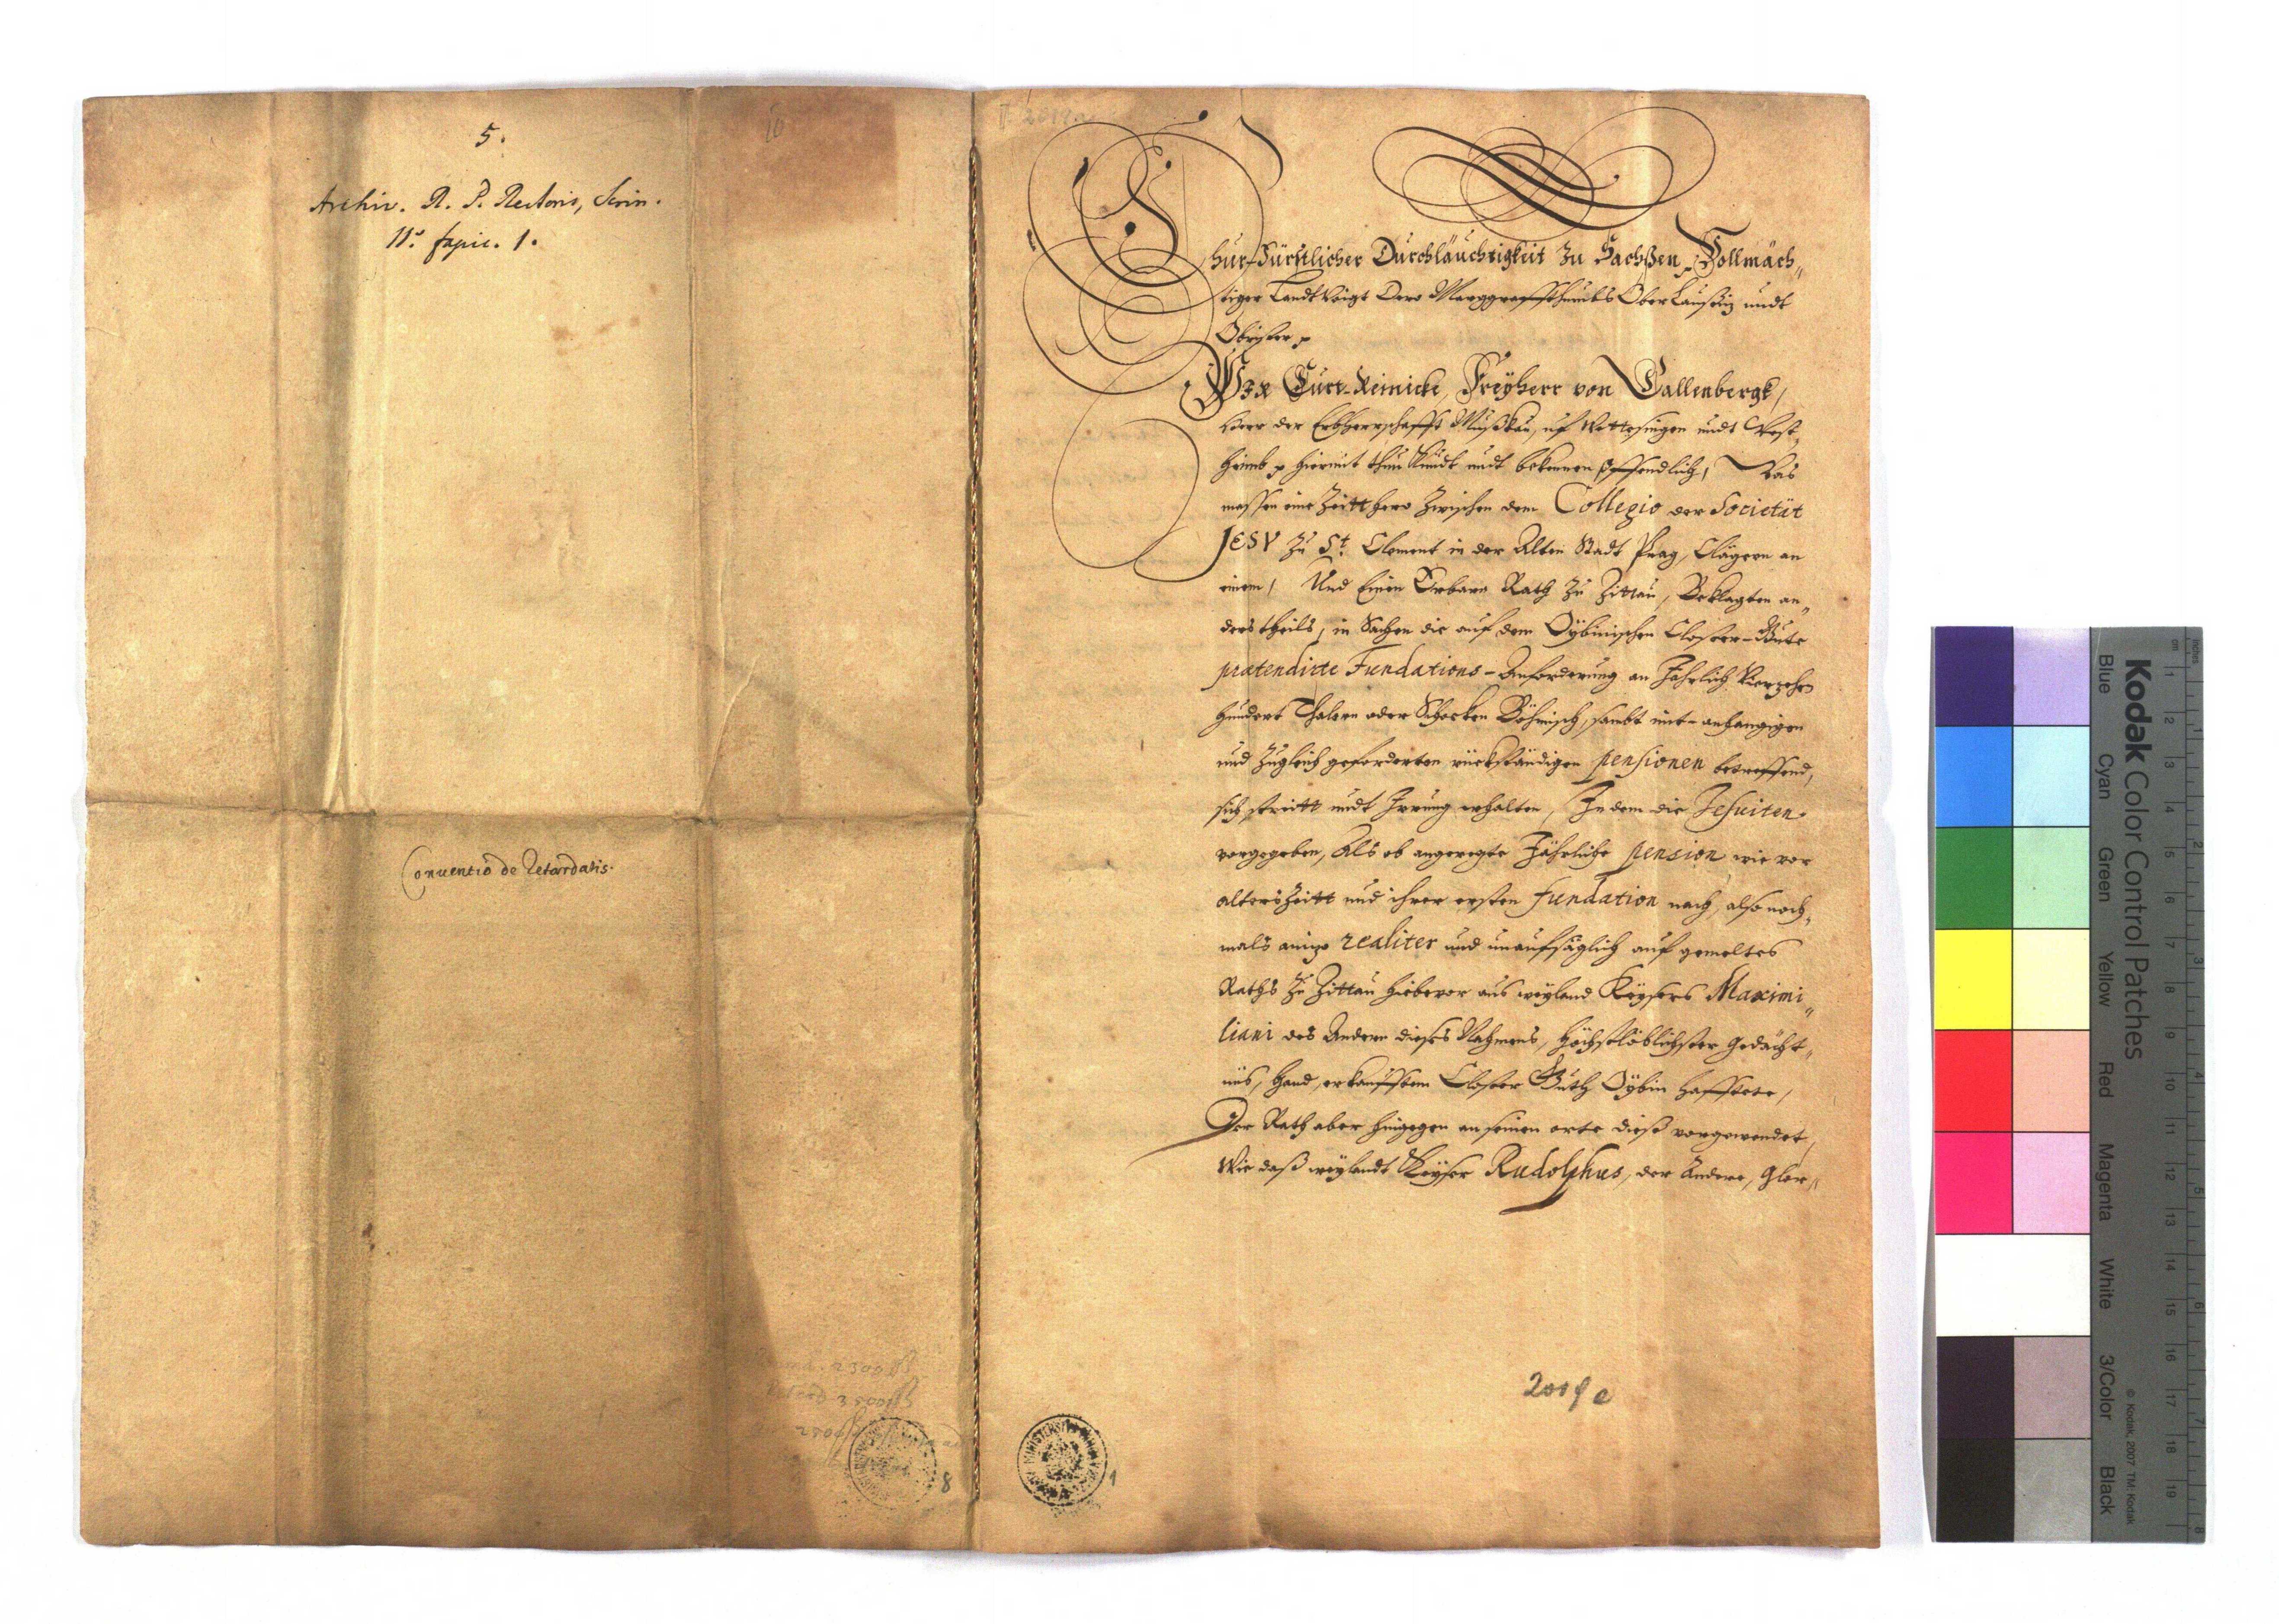 5.
Archiv. R. P. Rectoris, Scrin.
11. fasic. 1.
Conventio de Retardatis.
2500 ßß
3500 ßß
8
10
Chur-Fürstlicher Durchläuchtigkeit zu Sachßen p Vollmäch„
tiger Landt Voigt Dero Marggraffthumbs Ober Laußiz undt
Obrister p
Wir Curt-Reinicke, Freÿherr von Callenbergk,
Herr der Erbherrschafft Mußkau, uf Wettesingen undt West„
heimb p hiermit thun Kundt undt bekennen öffendlich, Was
massen eine Zeitthero Zwischen dem Collegio der Societät
JESV Zu St. Clement in der Alten Stadt Prag, Clägern an
einem, Und Einen Erbarn Rath Zu Zittau, Beklagten an„
derstheils, in Sachen die auf dem Oÿbinischen Closter-Gute
prætendirte Fundations-Anforderung an Jährlich Vierzehen
hundert Thalern oder Schocken Böhmisch, sambt mit-anhangigen
und Zugleich geforderten rückständigen pensionen betreffend,
sich streitt undt Irrung erhalten, In dem die Jesuiten
vorgegeben, Als ob angeregte Jährliche pension wie vor
alters Zeitt und ihrer ersten fundation nach, also noch„
mals anizo realiter und unaufsäglich auf gemeltes
Raths Zu Zittau hiebevor aus weÿland Keÿsers Maximi„
liani des Andern dieses Nahmens, höchstlöblichster Gedächt„
nüs, Hand, erkaufftem Closter Guth Oÿbin hafftete,
Der Rath aber hingegen an seinen orte dieß vorgewendet,
Wie daß weÿlandt Keÿser Rudolphus, der Andere, Glor„
2019 e
1
Kodak Color Control Patches
Blue Cyan Green Yellow Red Magenta White 3/Color Black
© Kodak, 2007 TM: Kodak
inches 1 2 3 4 5 6 7 8
cm 1 2 3 4 5 6 7 8 9 10 11 12 13 14 15 16 17 18 19